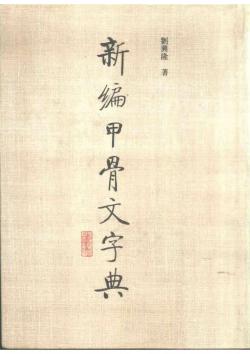 劉興隆 著
新編甲骨文字典